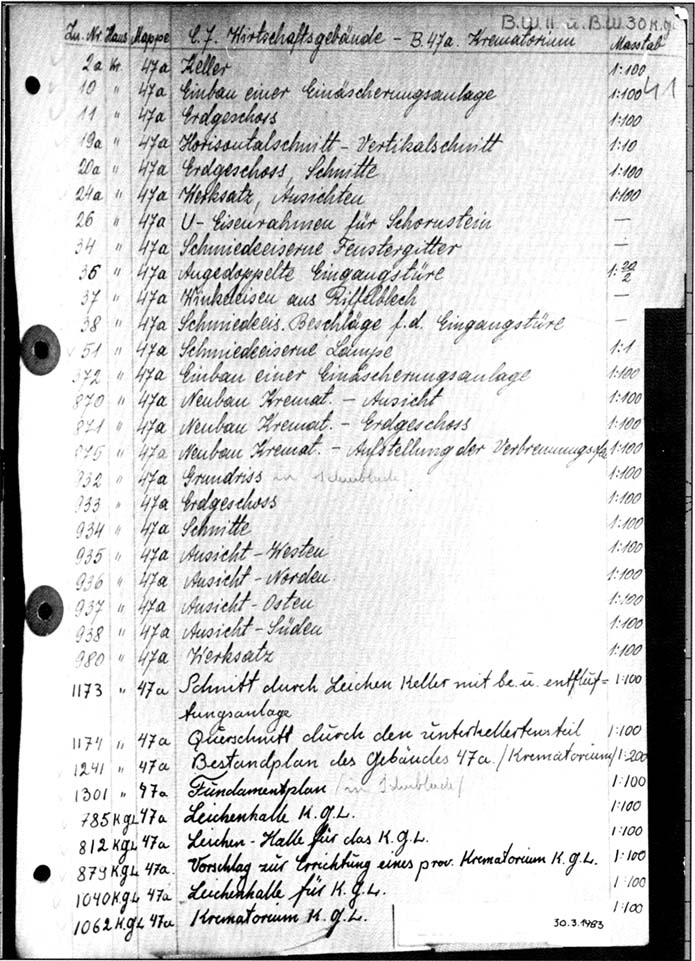 B.W.11 u. B.W.30 K.g.
Zn. Nr. Haus Mappe C.J. Wirtschaftsgebäude - B.47a. Krematorium Masstab
2a Kr. 47a Keller 1:100
10 " 47a Einbau einer Einäscherungsanlage 1:100 41
11 " 47a Erdgeschoss 1:100
19a " 47a Horisontalschnitt - Vertikalschnitt 1:10
20a " 47a Erdgeschoss, Schnitte 1:100
24a " 47a Werksatz, Ansichten 1:100
26 " 47a U-Eisenrahmen für Schornstein —
34 " 47a Schmiedeeiserne Fenstergitter —
36 " 47a Aufgedoppelte Eingangstüre 1:20/2
37 " 47a Winkeleisen aus Riffelblech —
38 " 47a Schmiedeeis. Beschläge f.d. Eingangstüre —
51 " 47a Schmiedeeiserne Lampe 1:1
372 " 47a Einbau einer Einäscherungsanlage 1:100
870 " 47a Neubau Kremat. - Ansicht 1:100
871 " 47a Neubau Kremat. - Erdgeschoss 1:100
875 " 47a Neubau Kremat. - Aufstellung der 1:100
932 " 47a Grundriss in Schublade 1:100
933 " 47a Erdgeschoss 1:100
934 " 47a Schnitte 1:100
935 " 47a Ansicht - Westen 1:100
936 " 47a Ansicht - Norden 1:100
937 " 47a Ansicht - Osten 1:100
938 " 47a Ansicht - Süden 1:100
980 " 47a Werksatz 1:100
1173 " 47a Schnitt durch Leichen Keller mit be. u. entlüf= 1:100
tungsanlage
1174 " 47a Querschnitt durch den unterkellerten teil 1:100
1241 " 47a Bestandplan des Gebäudes 47a. /Krematorium/ 1:200
1301 " 47a Fundamentplan /in Schublade/ 1:100
785 KgL 47a Leichenhalle K.g.L. 1:100
812 KgL 47a Leichen-Halle für das K.g.L. 1:100
879 KgL 47a. Vorschlag zur Errichtung eines prov. Krematorium K.g.L. 1:100
1040 KgL 47a Leichenhalle für K.g.L. 1:100
1062 KgL 47a Krematorium K.g.L. 1:100
30.3.1983